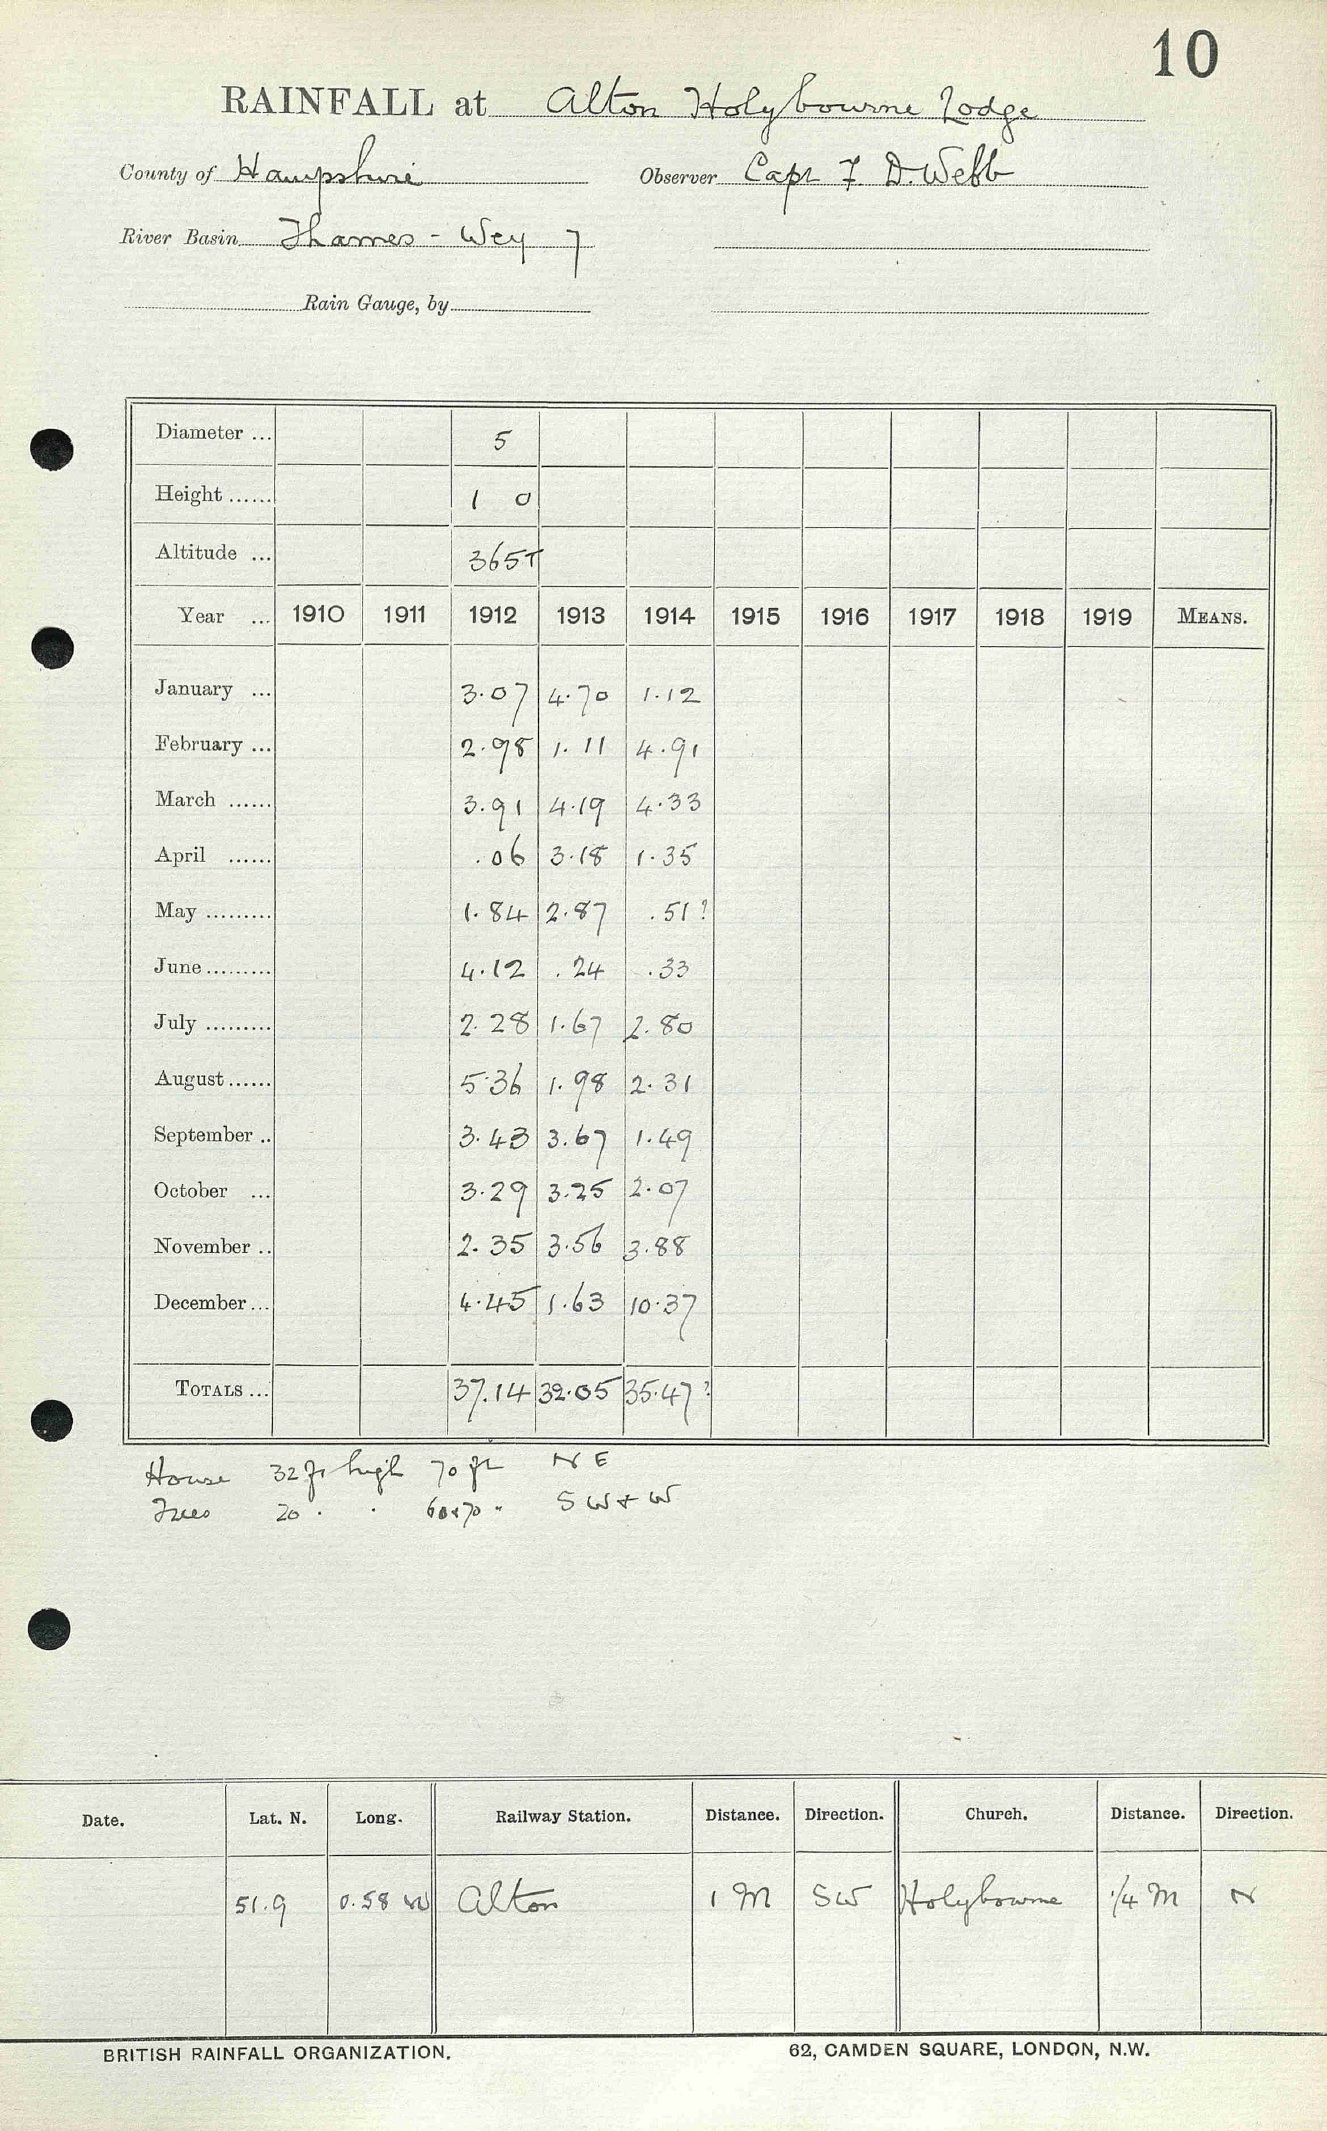 10
RAINFALL at Alton Holybourne Lodge
County of Hampshire Observer Capt F. D. Webb
River Basin Thames - Wey 7
Rain Gauge, by
Diameter ... 5
Height ...... 1 0
Altitude ... 365T
Year ... 1910 1911 1912 1913 1914 1915 1916 1917 1918 1919 MEANS.
January ... 3.07 4.70 1.12
February ... 2.98 1.11 4.91
March ...... 3.91 4.19 4.33
April ...... .06 3.18 1.35
May ......... 1.84 2.87 .51?
June ......... 4.12 .24 .33
July ......... 2.28 1.67 2.80
August ...... 5.36 1.98 2.31
September .. 3.43 3.67 1.49
October ... 3.29 3.25 2.07
November .. 2.35 3.56 3.88
December ... 4.45 1.63 10.37
TOTALS ... 37.14 32.05 35.47?
House 32 ft high 70 ft N E
Trees 20 . . 60&70 " SW & W
Date. Lat. N. Long. Railway Station. Distance. Direction. Church. Distance. Direction.
51.9 0.58 W Alton 1 M SW Holybourne 1/4 M N
BRITISH RAINFALL ORGANIZATION. 62, CAMDEN SQUARE, LONDON, N.W.